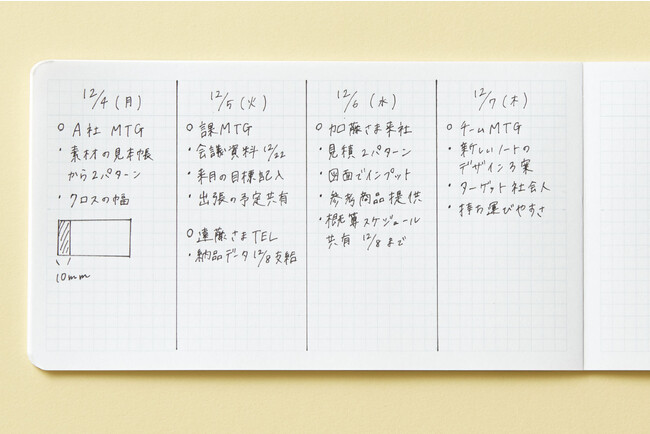 12/4(月)
○ A社 MTG
・素材の見本帳
から2パターン
・クロスの幅
10mm
12/5(火)
○ 課MTG
・会議資料 12/22
・来月の目標記入
・出張の予定共有
○ 遠藤さまTEL
・納品データ 12/8 支給
12/6(水)
○ 加藤さま来社
・見積2パターン
・図面でインプット
・参考商品提供
・概算スケジュール
共有 12/8 まで
12/7(木)
○ チームMTG
・新しいノートの
デザイン3案
・ターゲット社会人
・持ち運びやすさ